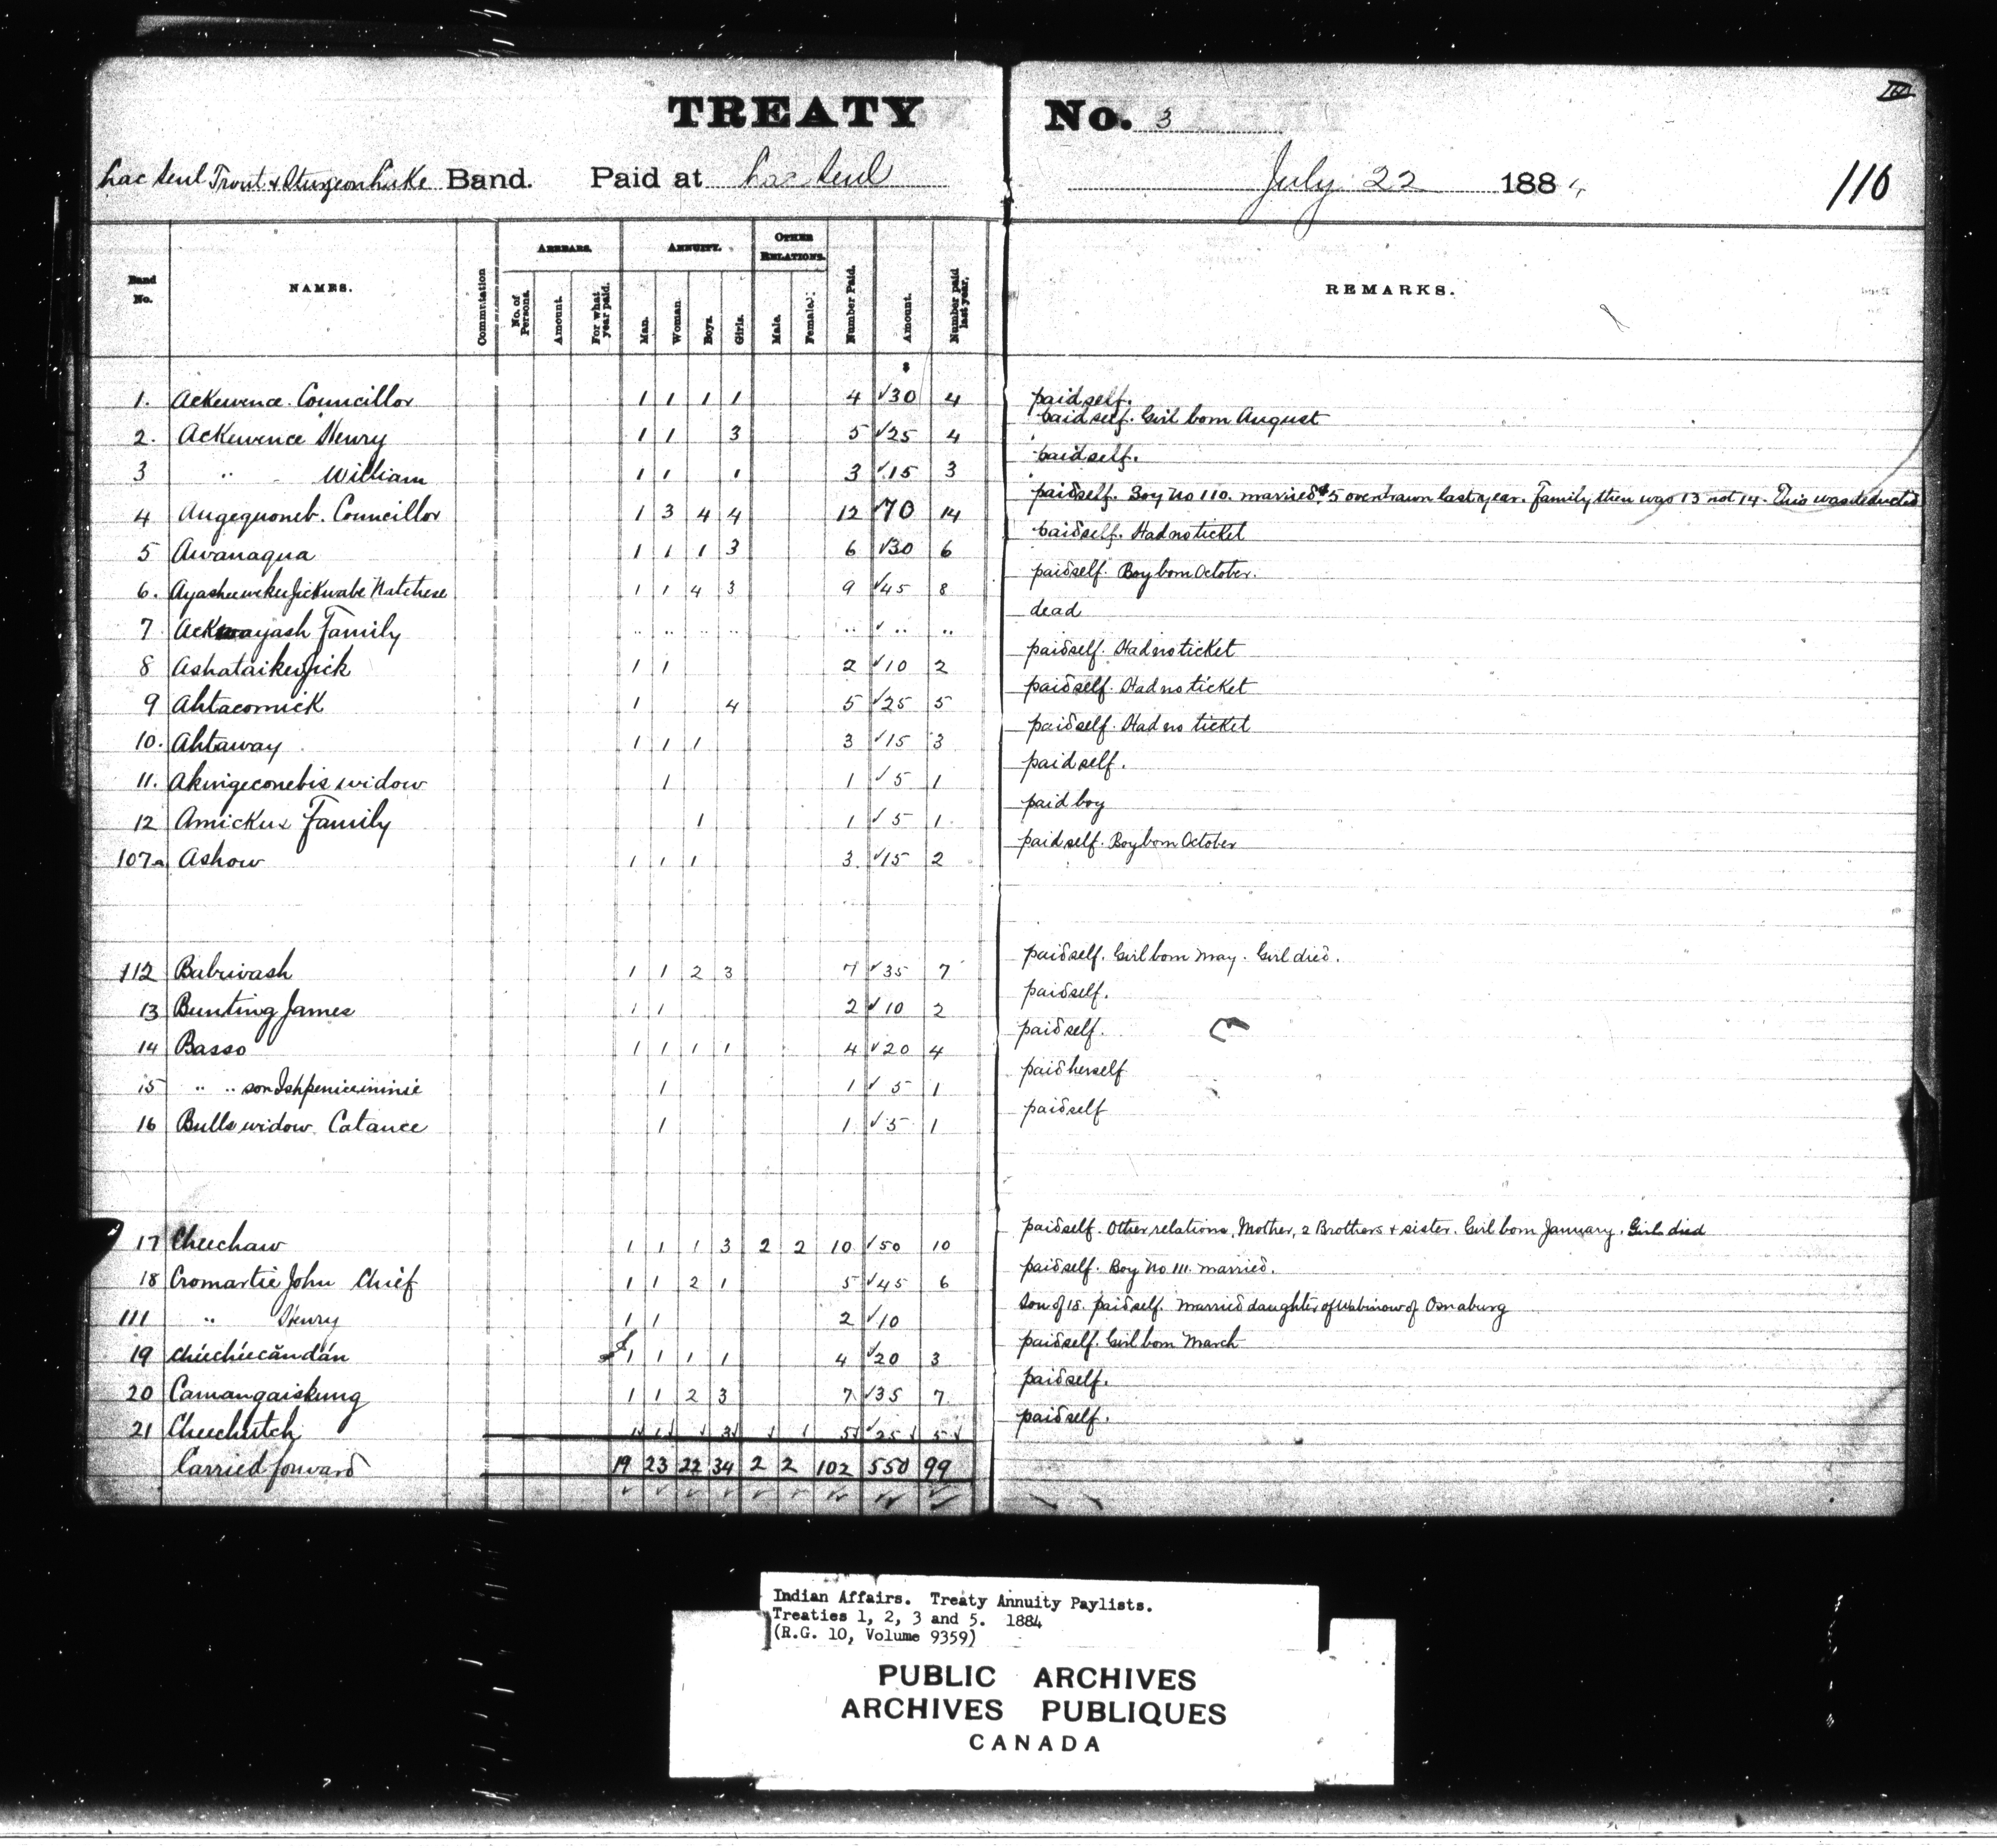 TREATY No. 3
Lac Seul Trout & Sturgeon Lake Band. Paid at Lac Seul July 22 1884 116
Band No. NAMES. Commutation ARREARS. No. of Persons. Amount. For what year paid. ANNUITY. Man. Woman Boys. Girls. OTHER RELATIONS. Male. Female. Number Paid. Amount. Number paid last year. REMARKS.
$
1. Ackewence Councillor 1 1 1 1 4 √30 4 paid self.
2. Ackewence Henry 1 1 3 5 √25 4 paid self. Girl born August
3 " William 1 1 1 3 √15 3 paid self.
4 Augequoneb. Councillor 1 3 4 4 12 √70 14 paid self. Boy No 110. married $5 overdrawn last year. Family then was 13 not 14. This was deducted
5 Awanaqua 1 1 1 3 6 √30 6 paid self. Had no ticket
6. Natchese 1 1 4 3 9 √45 8 paid self. Boy born October.
7 Ackwayash Family .. .. .. .. .. √ .. .. dead
8 Ashataikeijick 1 1 2 √10 2 paid self. Had no ticket
9 Ahtacomick 1 4 5 √25 5 paid self. Had no ticket
10. Ahtaway 1 1 1 3 √15 3 paid self. Had no ticket
11. Akingeconebis widow 1 1 √ 5 1 paid self.
12 Amickus Family 1 1 √ 5 1. paid boy
107a Ashow 1 1 1 3 √15 2 paid self. Boy born October
112 Babiwash 1 1 2 3 7 √35 7 paid self. Girl born May. Girl died.
13 Bunting James 1 1 2 √10 2 paid self.
14 Basso 1 1 1 1 4 √20 4 paid self.
15 " " son Ishpeniceininie 1 1 √ 5 1 paid herself
16 Bulls widow Catance 1 1 √5 1 paid self
17 Cheechaw 1 1 1 3 2 2 10 √50 10 paid self. Other relations, Mother, 2 Brothers & sister. Girl born January. Girl died
18 Cromartie John Chief 1 1 2 1 5 √45 6 paid self. Boy No 111. married.
111 " Henry 1 1 2 √10 son of 18. paid self. Married daughter of Wabinow of Osnaburg
19 Chéechéecăndán 1 1 1 1 4 √20 3 paid self. Girl born March
20 Camangaiskung 1 1 2 3 7 √35 7 paid self.
21 Cheechutch 1 1 3 5 √25 5 paid self.
Carried forward 19 23 22 34 2 2 102 550 99
Indian Affairs. Treaty Annuity Paylists.
Treaties 1, 2, 3 and 5. 1884
(R.G. 10, Volume 9359)
PUBLIC ARCHIVES
ARCHIVES PUBLIQUES
CANADA